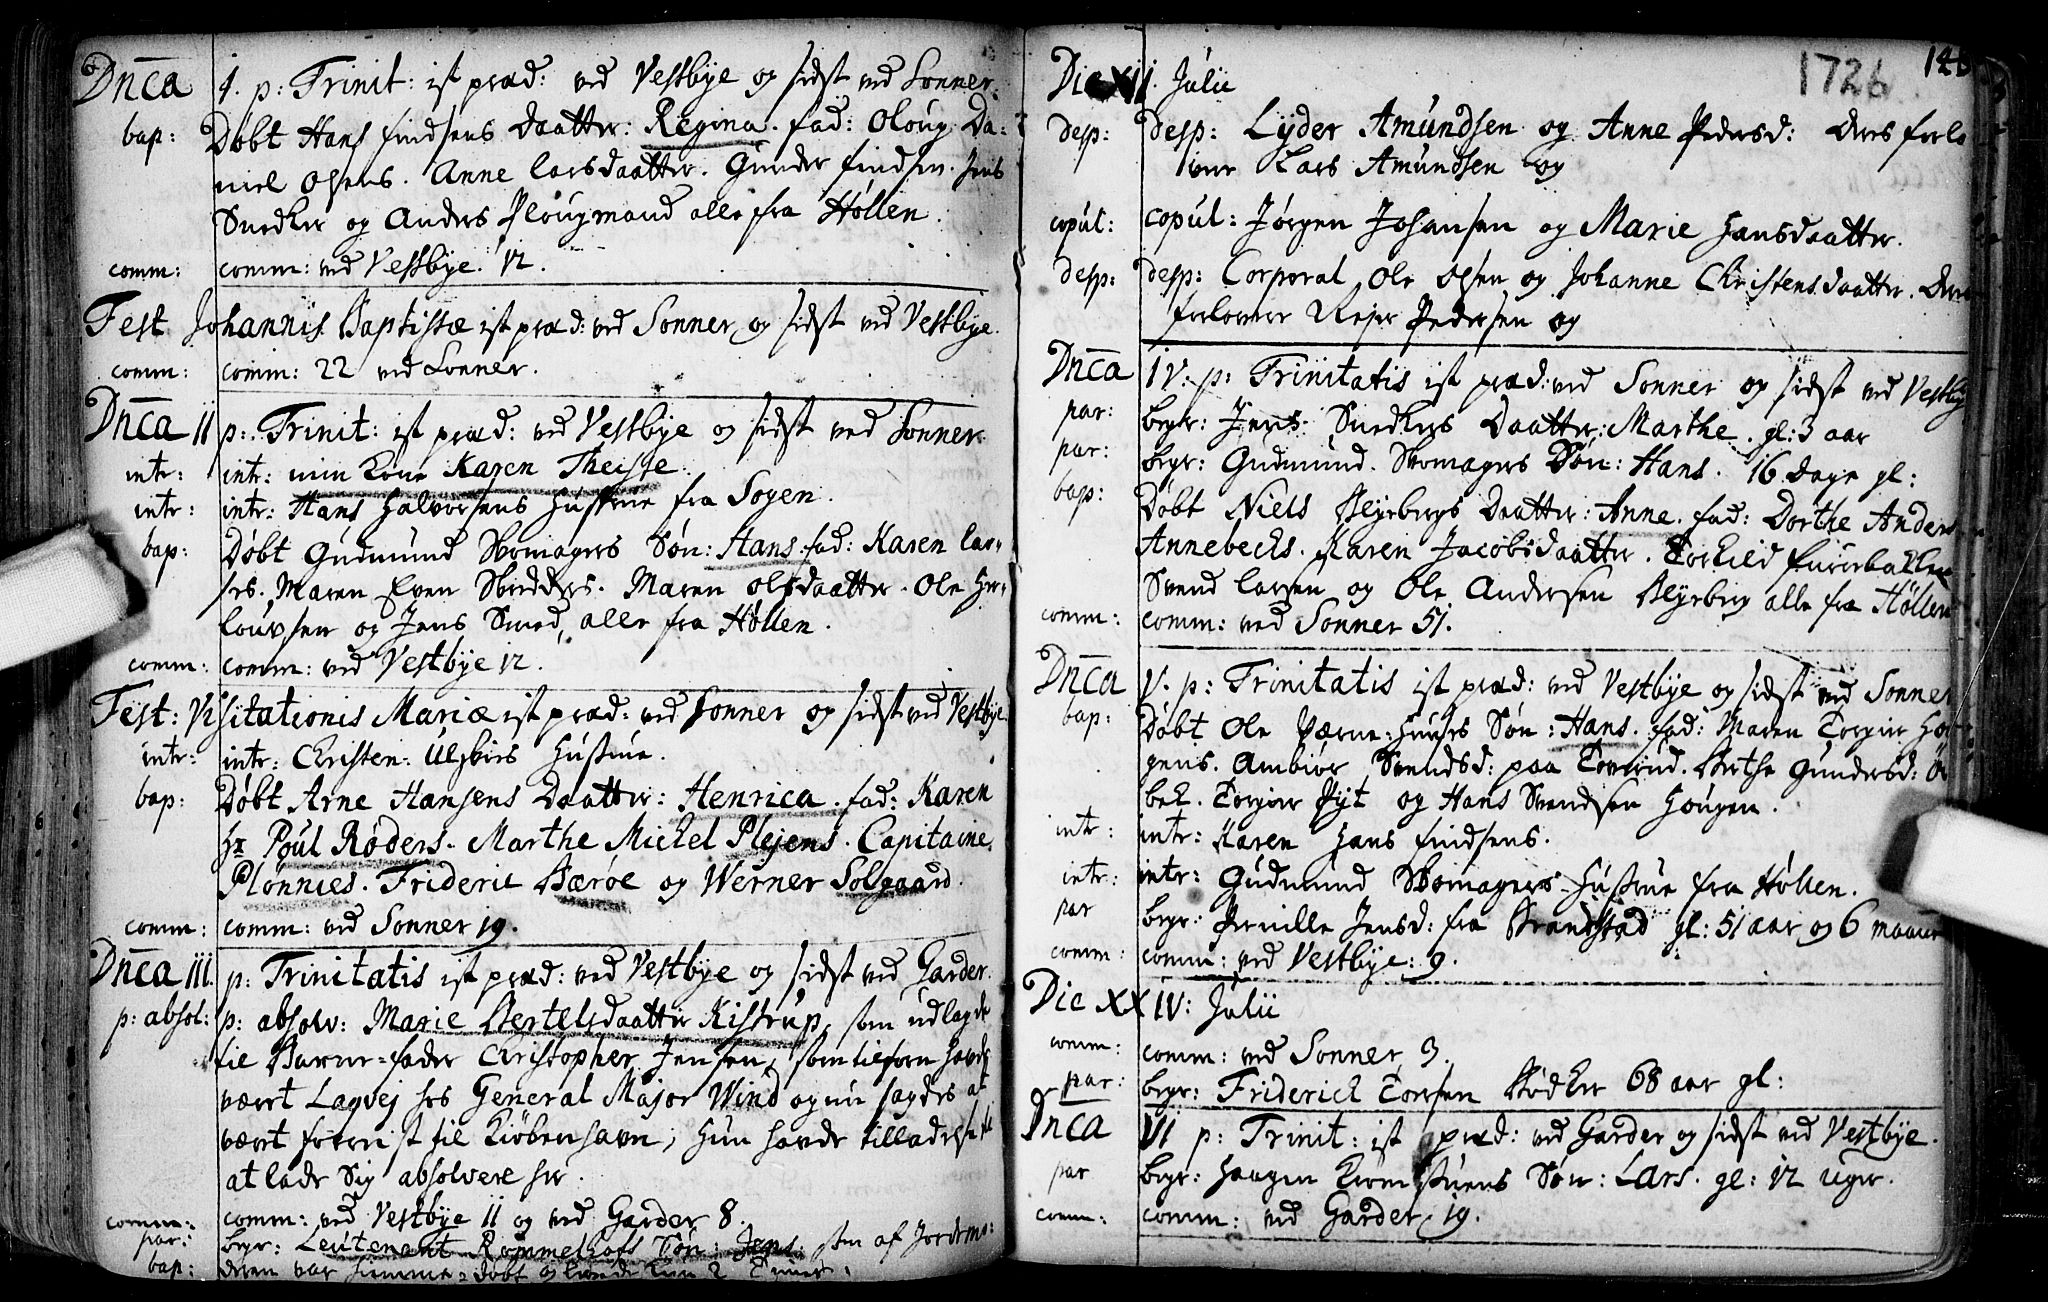 Dnca 1. p: Trinit: ist præd: ved Vestbye og sidst ved Sonner.
bap: Døbt Hans findsens Daatter: Regina. fad: Oloug Da:
niel Olsens. Anne larsdaatter. Gunder findsen. Jens
Snedker og Anders Plougmand alle fra Høllen.
comm: comm: ved Vestbye. 12.
Fest Johannis Baptistæ ist præd: ved Sonner og sidst ved Vestbye.
comm: comm: 22 ved Sonner.
Dnca II p: Trinit: ist præd: ved Vestbye og sidst ved Sonner.
intr: intr: min Kone Karen Theiste.
intr: intr: Hans Halvorsens Hustrue fra Sogen.
bap: Døbt Gudmund Skomagers Søn: Hans. fad: Karen lar-
ses. Maren Even Skredders. Maren olfsdaatter. Ole
lousen og Jens Smed, alle fra Høllen.
comm: comm: ved Vestbye 12.
Fest: Visitationis Mariæ ist præd: ved Sonner og sidst ved Vestbye.
intr: intr: Christen Hustrue.
bap: Døbt Arne Hansens Daatter: Henrica. fad: Karen
Hr Poul Røders. Marthe Michel Plejens. Capitaine
Plonnies. Frideric Bærøe og Werner Solgaard.
comm: comm: ved Sonner 19.
Dnca III. p: Trinitatis ist præd: ved Vestbye og sidst ved Garder.
p: absol: p: absolv: Marie Bertelsdaatter Kistrup, som udlagde
til Barne-fader Christopher Jensen, som tilforn havde
vært Laqvej hos General Major Wind og nu sagdes at
vært forrejst til Kiøbenhavn; Hun havde tilladelse
at lade Sig absolvere her.
comm: comm: ved Vestbye 11 og ved Garder 8.
par: begr: Leutenant Rommelhofs Søn: Jens. som af Jordemo:
bap: deren var hiemme-døbt og levede kun 2 Timer.
1726
Die XII. Julii
desp: desp: Lyder Amundsen og Anne Pedersd: Deres forlo
vere Lars Amundsen og
copul: copul: Jørgen Johansen og Marie Hansdaatter.
desp: desp: Corporal Ole Olsen og Johanne Christensdaatter. Deres
forlovere Rejer Pedersen og
Dnca IV. p: Trinitatis ist præd: ved Sonner og sidst ved Vestby
par: begr: Jens Snedkers Daatter: Marthe. gl: 3 aar
par: begr: Gudmund Skomagers Søn: Hans. 16 Dage gl:
bap: Døbt Niels Blyebergs Daatter: Anne. fad: Dorthe Anders
Annebechs. Karen Jacobsdaatter. Torkild furuebakken
Svend larsen og Ole Andersen Blyeberg alle fra Høllen
comm: comm: ved Sonner 51.
Dnca V. p: Trinitatis ist præd: ved Vestbye og sidst ved Sonner
bap: Døbt Ole Værne-Huuses Søn: Hans. fad: Maren Torger
gens. Ambiør Svendsd: paa Toverud. Birthe Gundersd:
bek. Torger Pyt og Hans Svendsen Hougen.
intr: intr: Karen Hans findsens.
intr: intr: Gudmund Skomagers Hustrue fra Høllen.
par begr: Pernille Jensd: fra Brandstad gl: 51 aar og 6 maaner
comm: comm: ved Vestbye: 9.
Die XXIV: Julii
comm: comm: ved Sonner 3.
par: begr: Friderich Toresen Bødker 68 aar gl:
Dnca VI p: Trinit: ist præd: ved Garder og sidst ved Vestbye.
par begr: Haagen Søn: Lars. gl: 12 uger.
comm: comm: ved Garder 19.